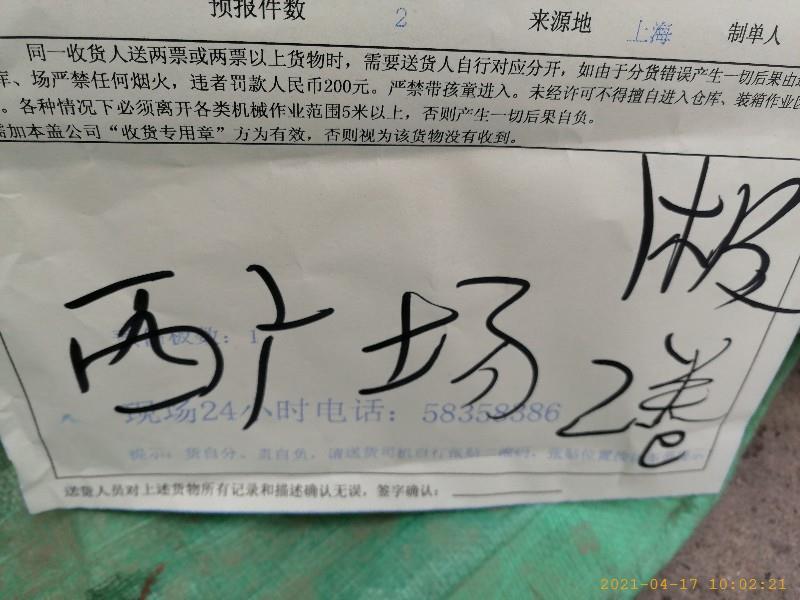 预报件数 2 来源地 上海 制单人
同一收货人送两票或两票以上货物时，需要送货人自行对应分开，如由于分货错误产生一切后果由
库、场严禁任何烟火，违者罚款人民币200元。严禁带孩童进入。未经许可不得擅自进入仓库、装箱作业
。各种情况下必须离开各类机械作业范围5米以上，否则产生一切后果自负。
加本盖公司“收货专用章”方为有效，否则视为该货物没有收到。
1木板
西广场
2卷
板数：1
现场24小时电话：58358386
提示：货自分、责自负，请送货司机自行张贴二维码，张贴位置
送货人员对上述货物所有记录和描述确认无误，签字确认：
2021-04-17 10:02:21